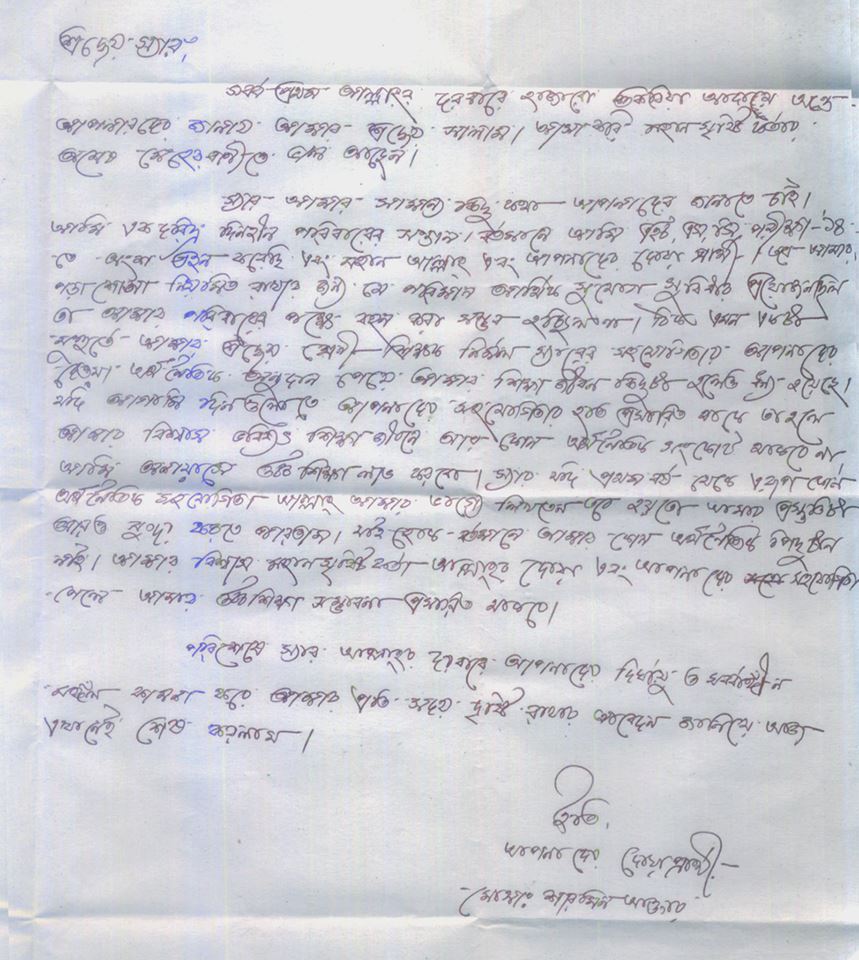 শ্রদ্ধেয় স্যার,
সর্ব প্রথম আল্লাহর দরবারে হাজারো শুকরিয়া আদায় অন্তে
আপনাদের জানাই আমার শ্রদ্ধেয় সালাম। আশা করি মহান সৃষ্টি কর্তার
অশেষ মেহেরবাণীতে ভাল আছেন।
স্যার আমার সামান্য কিছু কথা আপনাদের জানাতে চাই।
আমি এক দরিদ্র দিনহীন পরিবারের সন্তান। বর্তমানে আমি এইচ, এস, সি, পরীক্ষা-'১৪
তে অংশ গ্রহন করেছি এবং মহান আল্লাহ এবং আপনাদের দোয়া প্রার্থী। এবং আমার
পড়াশোনা নিয়মিত রাখার জন্য যে পরিমান আর্থিক সুযোগ সুবিধার প্রয়োজন ছিল
তা আমার পরিবারের পক্ষে বহন করা সম্ভব হচ্ছিলনা। ঠিক এমন একটা
মুহূর্তে আমার শ্রদ্ধেয় শ্রেণী শিক্ষক নির্মল স্যারের সহযোগিতায় আপনাদের
দেওয়া অর্থনৈতিক অনুদান পেয়ে আমার শিক্ষা জীবন কিছুটা হলেও ধন্য হয়েছে।
যদি আগামী দিন গুলোতে আপনাদের সহযোগিতার হাত প্রসারিত থাকে তাহলে
আমার বিশ্বাস ভবিষ্যৎ শিক্ষা জীবনে আর কোন অর্থনৈতিক সংকোট থাকবে না
আমি অনায়াসে উচ্চ শিক্ষা লাভ করবো। স্যার যদি প্রথম বর্ষ থেকে এরূপ কোন
অর্থনৈতিক সহযোগিতা আল্লাহ আমার ভাগ্যে লিখতেন তবে হয়তো আমার প্রস্তুতিটা
আরও সুন্দর করতে পারতাম। যাই হোক বর্তমানে আমার কোন অর্থনৈতিক পিছুটান
নাই। আমার বিশ্বাস মহান সৃষ্টি কর্তা আল্লাহর দোয়া এবং আপনাদের সহযোগিতা
পেলে আমার উচ্চ শিক্ষা সম্ভাবনা প্রসারিত থাকবে।
পরিশেষে স্যার আল্লাহর দরবারে আপনাদের দির্ঘায়ু ও সর্বাঙ্গীন
মঙ্গল কামনা করে আমার প্রতি সদয় দৃষ্টি রাখার আবেদন জানিয়ে আজ
এখানেই শেষ করলাম।
ইতি,
আপনাদের দোয়া প্রার্থী-
মোসাঃ শারমিন আক্তার